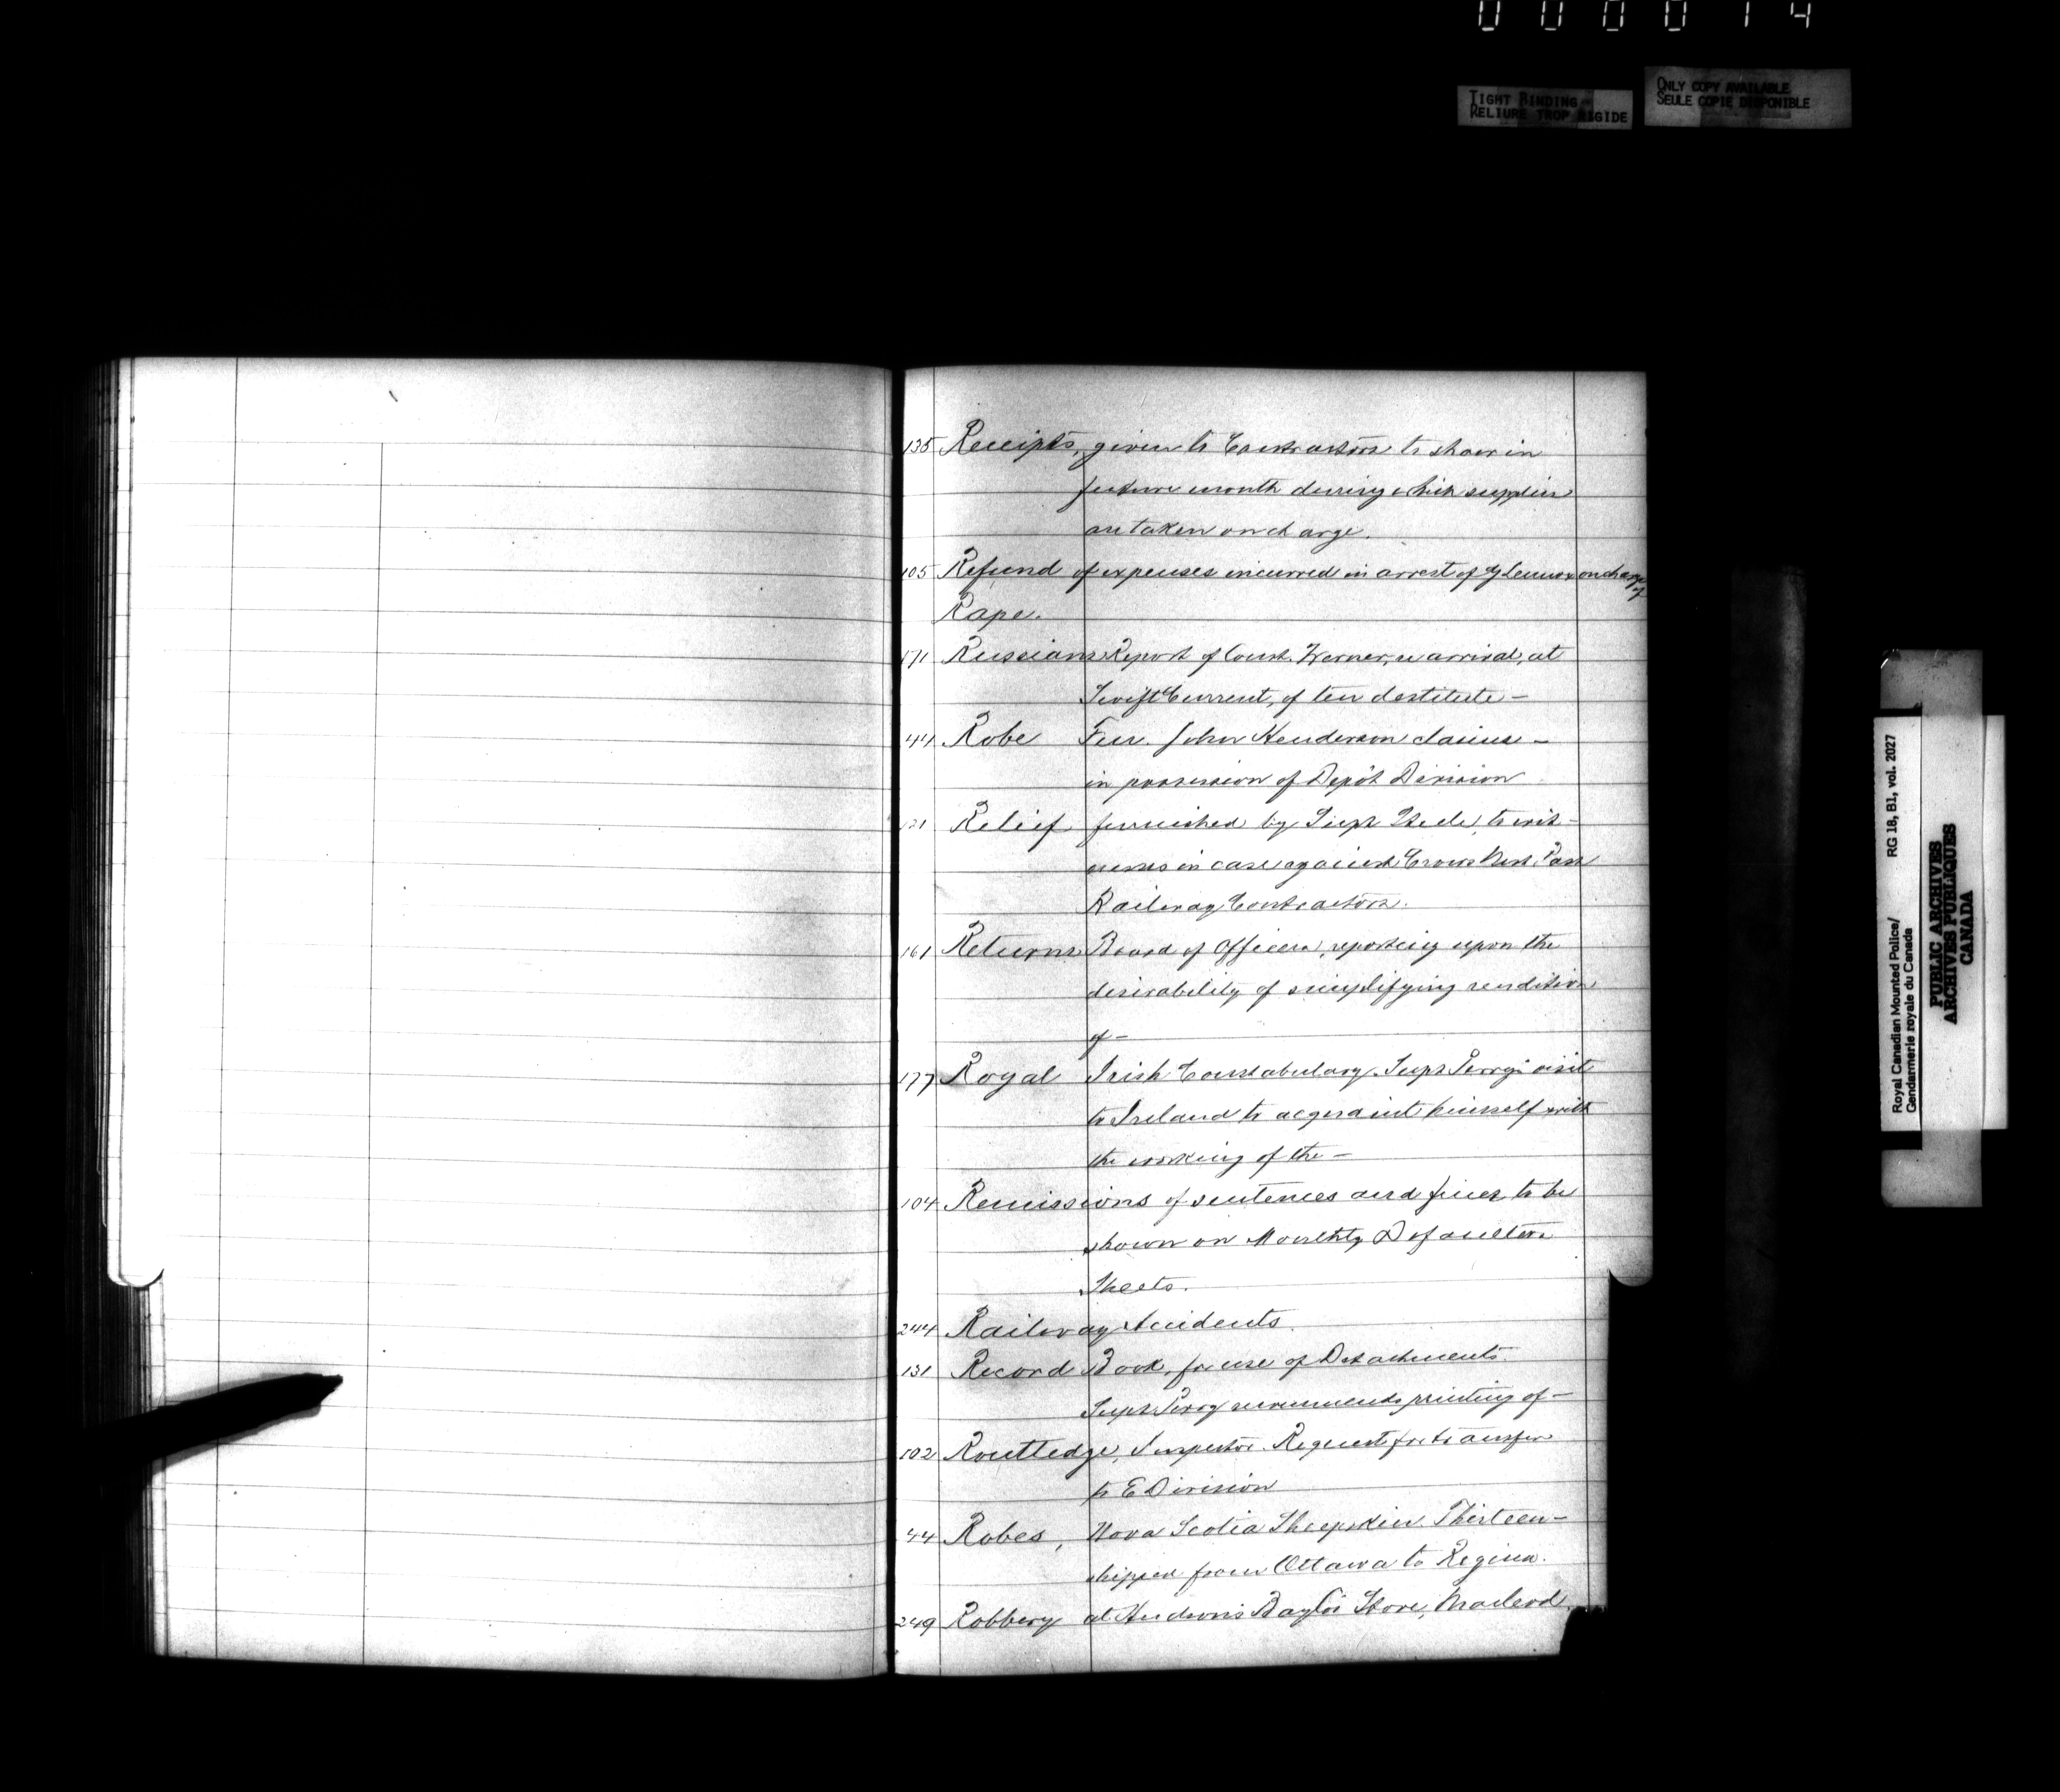 000014
TIGHT BINDING
RELIURE TROP RIGIDE
ONLY COPY AVAILABLE
SEULE COPIE DISPONIBLE
135 Receipts, given to Contractors to show in
future month during which supplies
are taken on charge.
105 Refund of expenses incurred in arrest of on charge
of
Rape.
171 Russians Report of Const. re arrival, at
Swift Current, of ten destitute —
44 Robe Fur. John Henderson claims —
in possession of Depôt Division
furnished by Supt Steele, to wit-
Relief
nesses in case against Crows Nest Pass
Railway Contractors.
161 Returns Board of Officers, reporting upon the
desirability of simplifying rendition
of —
177 Royal Irish Constabulary. Supt Perry's visit
to Ireland to acquaint himself with
the working of the —
104 Remissions of sentences and fines to be
shown on Monthly Defaulters
Sheets.
244 Railway Accidents.
131 Record Book, for use of Detachments.
Supt Perry recommends printing of —
102 Routledge, Inspector. Request for transfer
to E Division
44 Robes, Nova Scotia Sheepskin. Thirteen —
shipped from Ottawa to Regina.
249 Robbery at Hudson's Bay Co's Store, Macleod.
Royal Canadian Mounted Police/ RG 18, B1, vol. 2027
Gendarmerie royale du Canada
PUBLIC ARCHIVES
ARCHIVES PUBLIQUES
CANADA